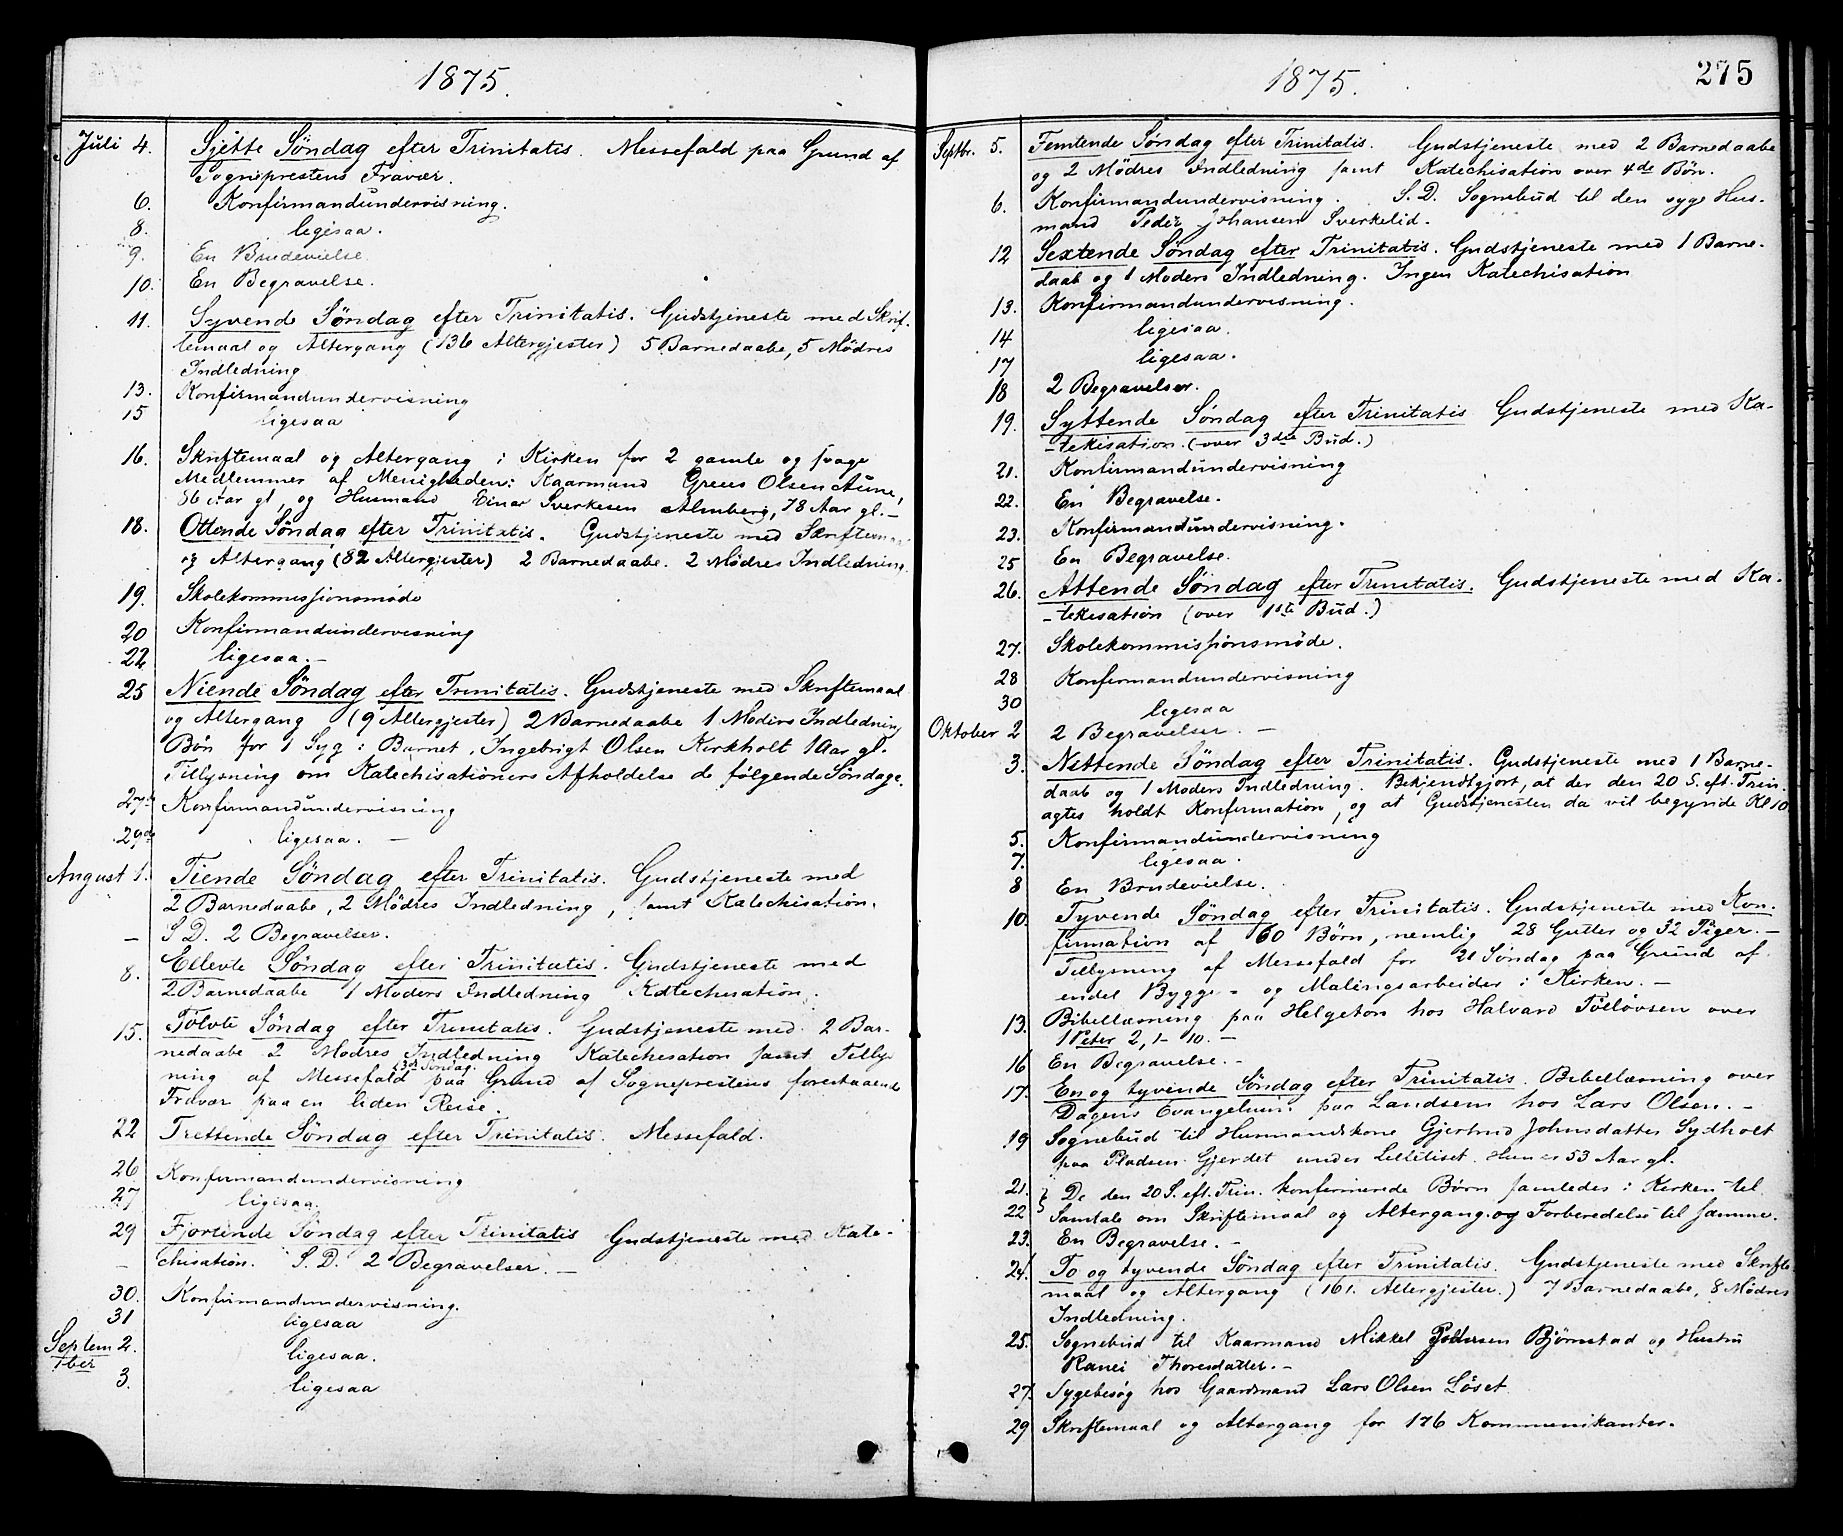 1875.
Juli 4. Sjette Søndag efter Trinitatis. Messefald paa Grund af
Sogneprestens Fravær.
6. Konfirmandundervisning.
8. ligesaa.
9. En Brudevielse
10. En Begravelse.
11. Syvende Søndag efter Trinitatis. Gudstjeneste med Skrif-
temaal og Altergang (136 Altergjester) 5 Barnedaabe, 5 Mødres
Indledning
13. Konfirmandundervisning
15 ligesaa
16. Skriftemaal og Altergang i Kirken for 2 gamle og svage
Medlemmer af Menigheden: Kaarmand Olsen Aune,
86 Aar gl, og Husmand Einar Sverkesen Almberg, 78 Aar gl. -
18. Ottende Søndag efter Trinitatis. Gudstjeneste med Skriftemaal
og Altergang (82 Altergjester) 2 Barnedaabe. 2 Mødres Indledning.
19. Skolekommissionsmøde
20 Konfirmandundervisning
22 ligesaa. -
25 Niende Søndag efter Trinitatis. Gudstjeneste med Skriftemaal
og Altergang (9 Altergjester) 2 Barnedaabe 1 Moders Indledning
Bøn for 1 Syg: Barnet, Ingebrigt Olsen Kirkholt 1 Aar gl.
Tillysning om Katechisationers Afholdelse de følgende Søndage.
27de Konfirmandundervisning
29de ligesaa. -
August 1. Tiende Søndag efter Trinitatis. Gudstjeneste med
2 Barnedaabe, 2 Mødres Indledning, samt Katechisation.
- S D. 2 Begravelser.
8. Ellevte Søndag efter Trinitatis. Gudstjeneste med
2 Barnedaabe 1 Moders Indledning Katechisation.
15. Tolvte Søndag efter Trinitatis. Gudstjeneste med 2 Bar-
nedaabe 2 Mødres Indledning Katechisation samt Tilly-
ning af Messefald 13de Søndag paa Grund af Sogneprestens forestaaende
Fravær paa en liden Reise.
22 Trettende Søndag efter Trinitatis. Messefald.
26 Konfirmandundervisning
27 ligesaa.
29 Fjortende Søndag efter Trinitatis Gudstjeneste med Kate-
- chisation. S. D. 2 Begravelser. -
30. Konfirmandundervisning.
31 ligesaa
Septem 2. ligesaa.
ber
3. ligesaa
1875.
275
Septbr. 5. Femtende Søndag efter Trinitatis. Gudstjeneste med 2 Barnedaabe
og 2 Mødres Indledning samt Katechisation over 4de Bøn.
6. Konfirmandundervisning. S. D. Sognebud til den syge Hus-
mand Peder Johansen Sverkelid.
12 Sextende Søndag efter Trinitatis. Gudstjeneste med 1 Barne-
daab og 1 Moders Indledning. Ingen Katechisation
13. Konfirmandundervisning.
14 ligesaa.
17 ligesaa.
18 2 Begravelser.
19. Syttende Søndag efter Trinitatis Gudstjeneste med Ka-
-tekisation. (over 3die Bud.)
21. Konfirmandundervisning
22. En Begravelse.
23. Konfirmandundervisning.
25 En Begravelse.
26. Attende Søndag efter Trinitatis. Gudstjeneste med Ka-
-tekisation (over 1ste Bud.)
27. Skolekommissionsmøde.
28 Konfirmandundervisning
30 ligesaa
Oktober 2 2 Begravelser. -
3. Nittende Søndag efter Trinitatis. Gudstjeneste med 1 Barne-
daab og 1 Moders Indledning. Bekjendtgjort, at der den 20 S. eft. Trin.
agtes holdt Konfirmation, og at Gudstjenesten da vil begynde Kl 10
5. Konfirmandundervisning
7. ligesaa.
8 En Brudevielse.
10. Tyvende Søndag efter Trinitatis. Gudstjeneste med Kon-
firmation af 60 Børn, nemlig 28 Gutter og 32 Piger. -
Tillysning af Messefald for 21 Søndag paa Grund af
endel Bygge- og Malingsarbeider i Kirken. -
13. Bibellæsning paa Helgeton hos Halvard Tølløvsen over
1 Peter 2, 1-10. -
16 En Begravelse. -
17. En og tyvende Søndag efter Trinitatis. Bibellæsning over
Dagens Evangelium paa Landsem hos Lars Olsen. -
19 Sognebud til Husmandskone Gjertrud Johnsdatter Sydholt
paa Pladsen Gjerdet under Lilletiset. Hun er 53 Aar gl.
21. } De den 20 S. eft. Trin. konfirmerede Børn samledes i Kirken til
22 Samtale om Skriftemaal og Altergang og Forberedelse til samme.
23. En Begravelse. -
24. To og tyvende Søndag efter Trinitatis. Gudstjeneste med Skrifte-
maal og Altergang (161. Altergjester.) 7 Barnedaabe, 8 Mødres
Indledning.
25. Sognebud til Kaarmand Mikkel Pedersen Bjørnstad og Hustru
Ranei Thoresdatter. -
27. Sygebesøg hos Gaardmand Lars Olsen Løset
29 Skriftemaal og Altergang for 176 Kommunikanter.